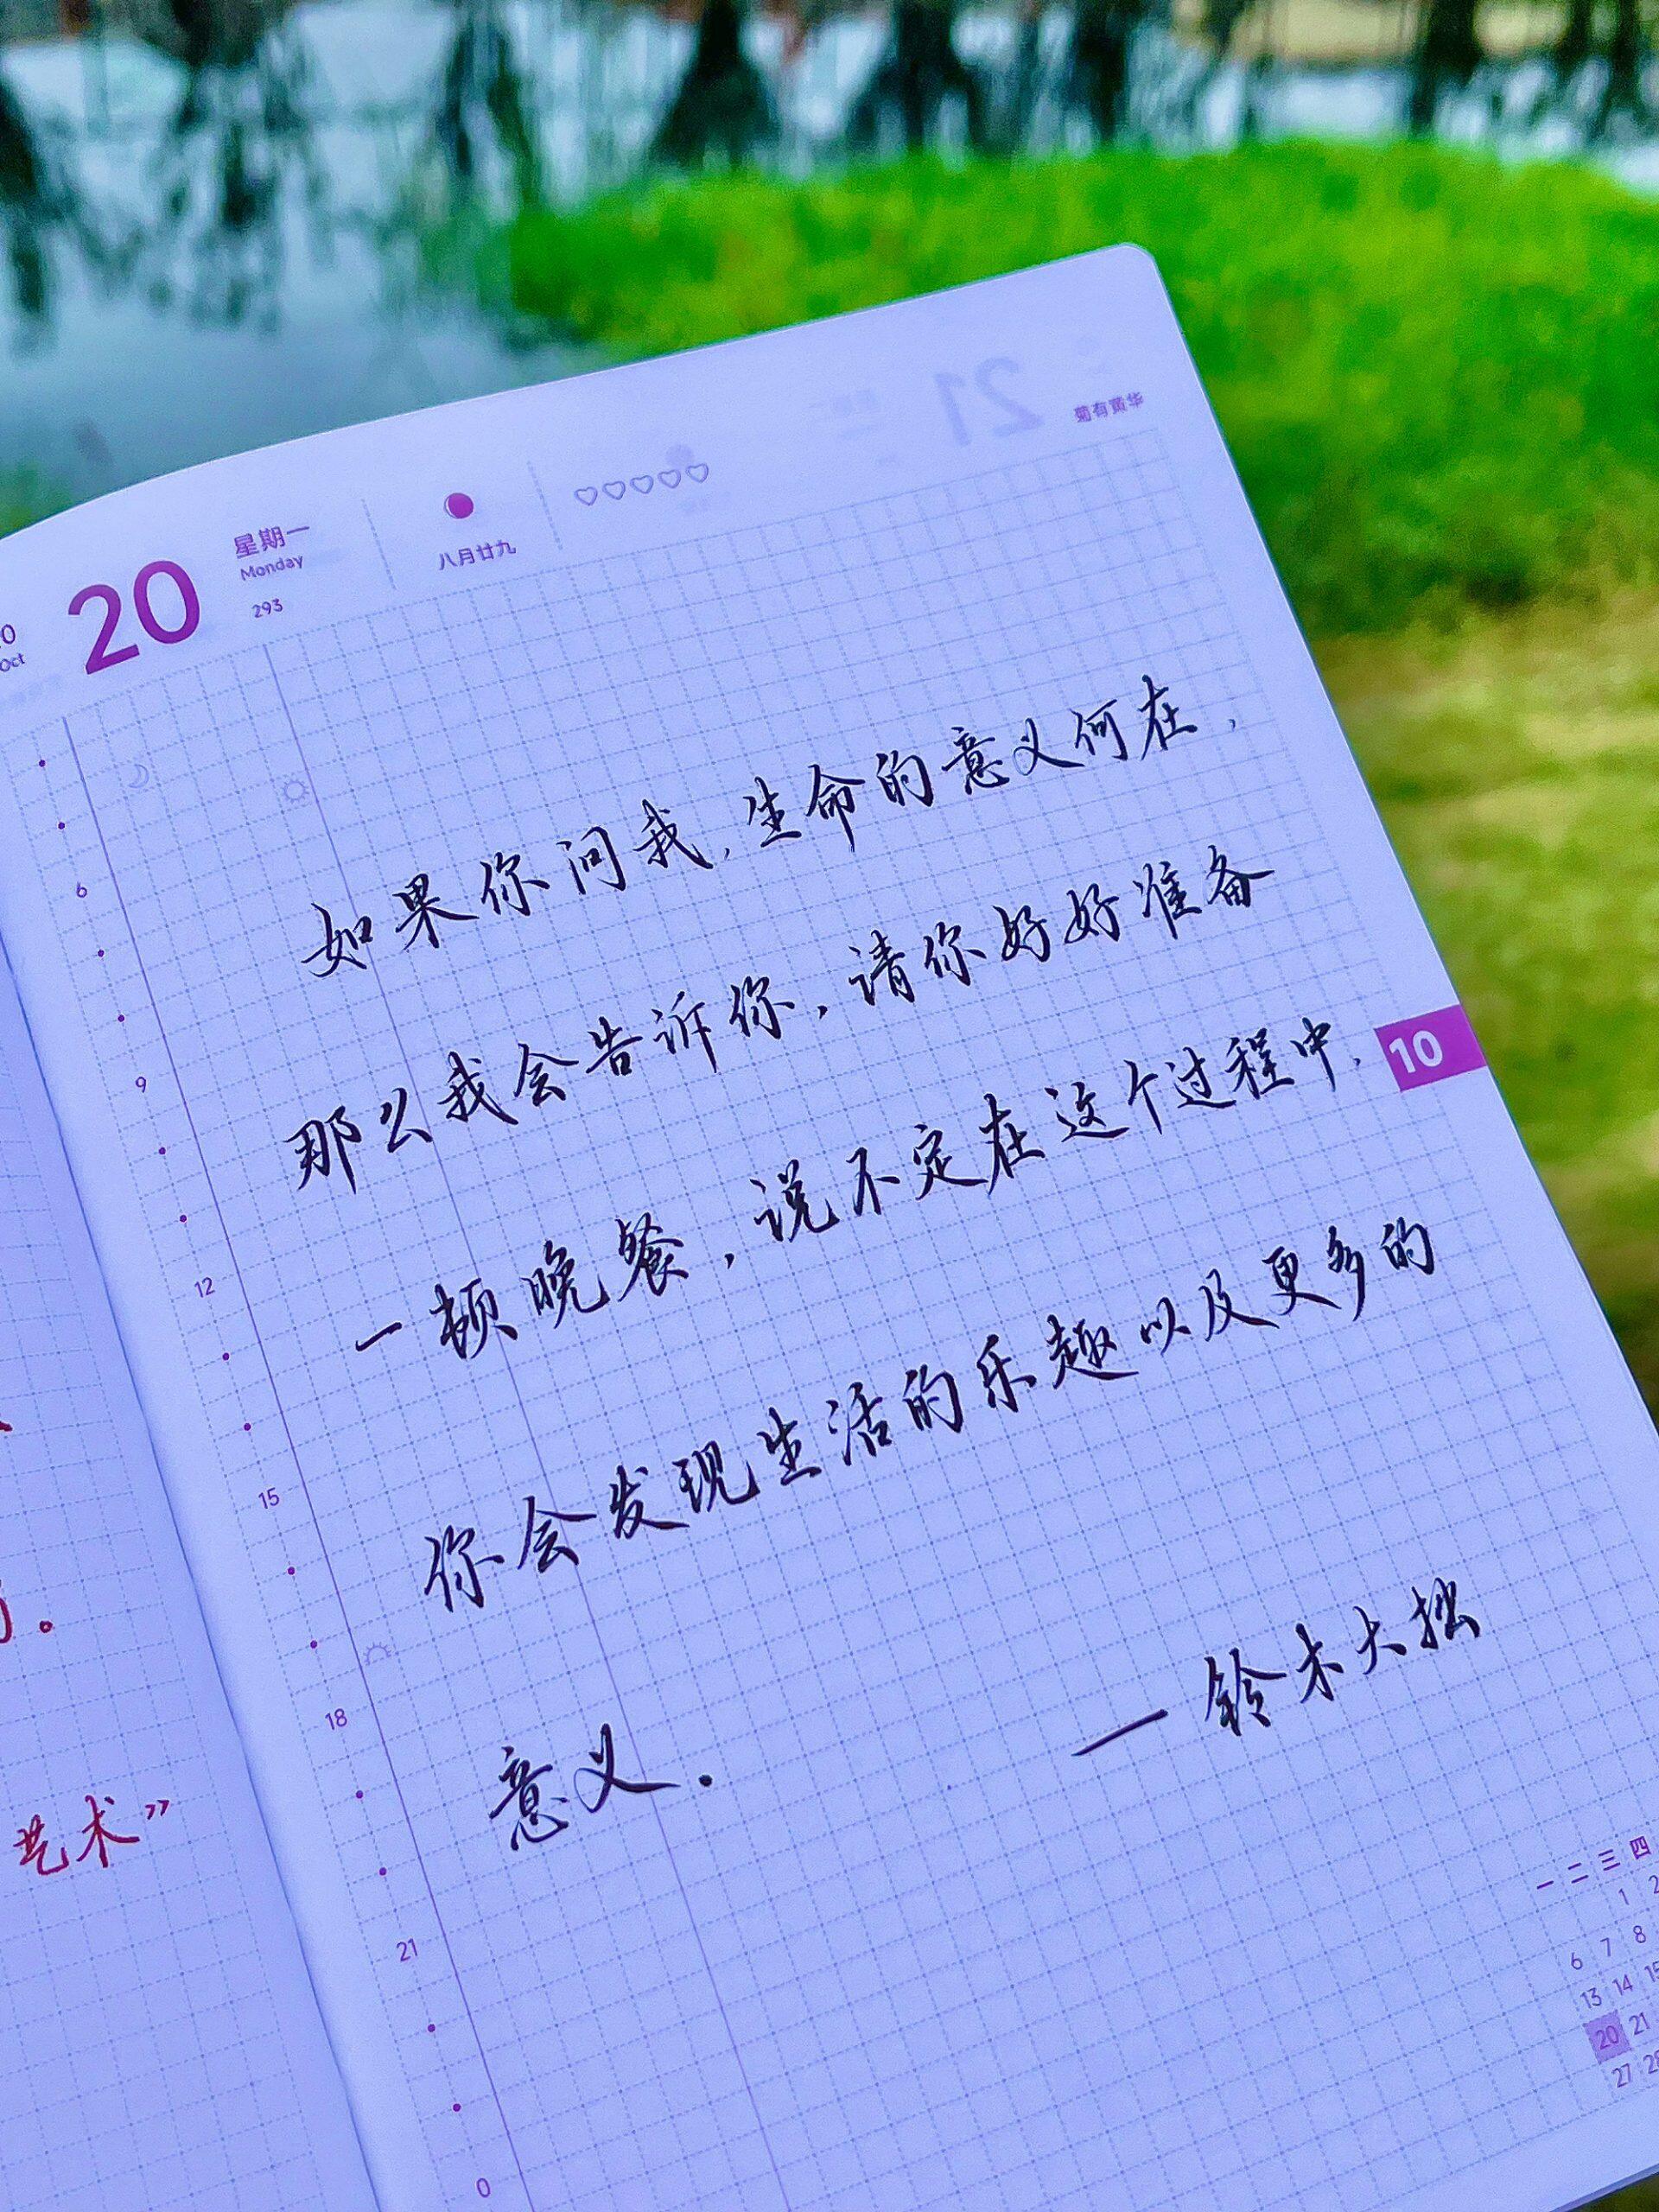 21
菊有黄华
♡♡♡♡♡
20 星期一
Monday
293
八月廿九
Oct
如果你问我,生命的意义何在,
那么我会告诉你,请你好好准备
一顿晚餐,说不定在这个过程中,
你会发现生活的乐趣以及更多的
意义.
—铃木大拙
10
6
9
12
15
18
21
0
艺术”
一 二 三 四
1 2
6 7 8
13 14 15
20 21
27 28